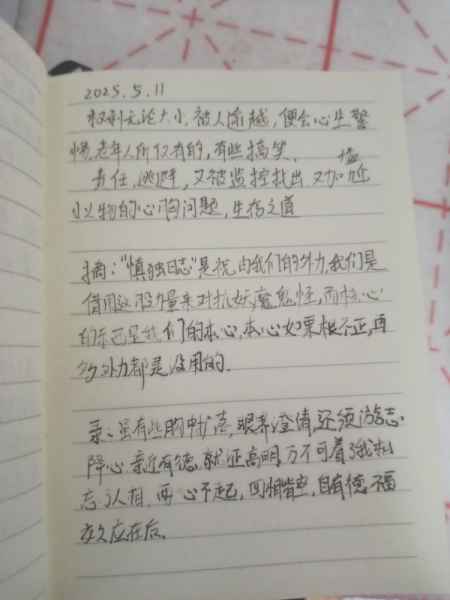 2025.5.11
权利无论大小,被人逾越,便会心生警
惕,老年人所仅有的,有些搞笑。
责任,逃避,又被监控找出 又加
小人物的心胸问题,生存之道
摘:"慎独日志"是祝由我们的外力,我们是
借用这股力量来对抗妖魔鬼怪,而核心
的东西是我们的本心,本心如果相不正,再
多外力都是没用的。
录:虽有些胸中扩荡,眼界澄清,还须游志
降心 亲近有德,就正高明,万不可着了我相
忘人相,两心不起,回相皆空,自有德福
效应在后。